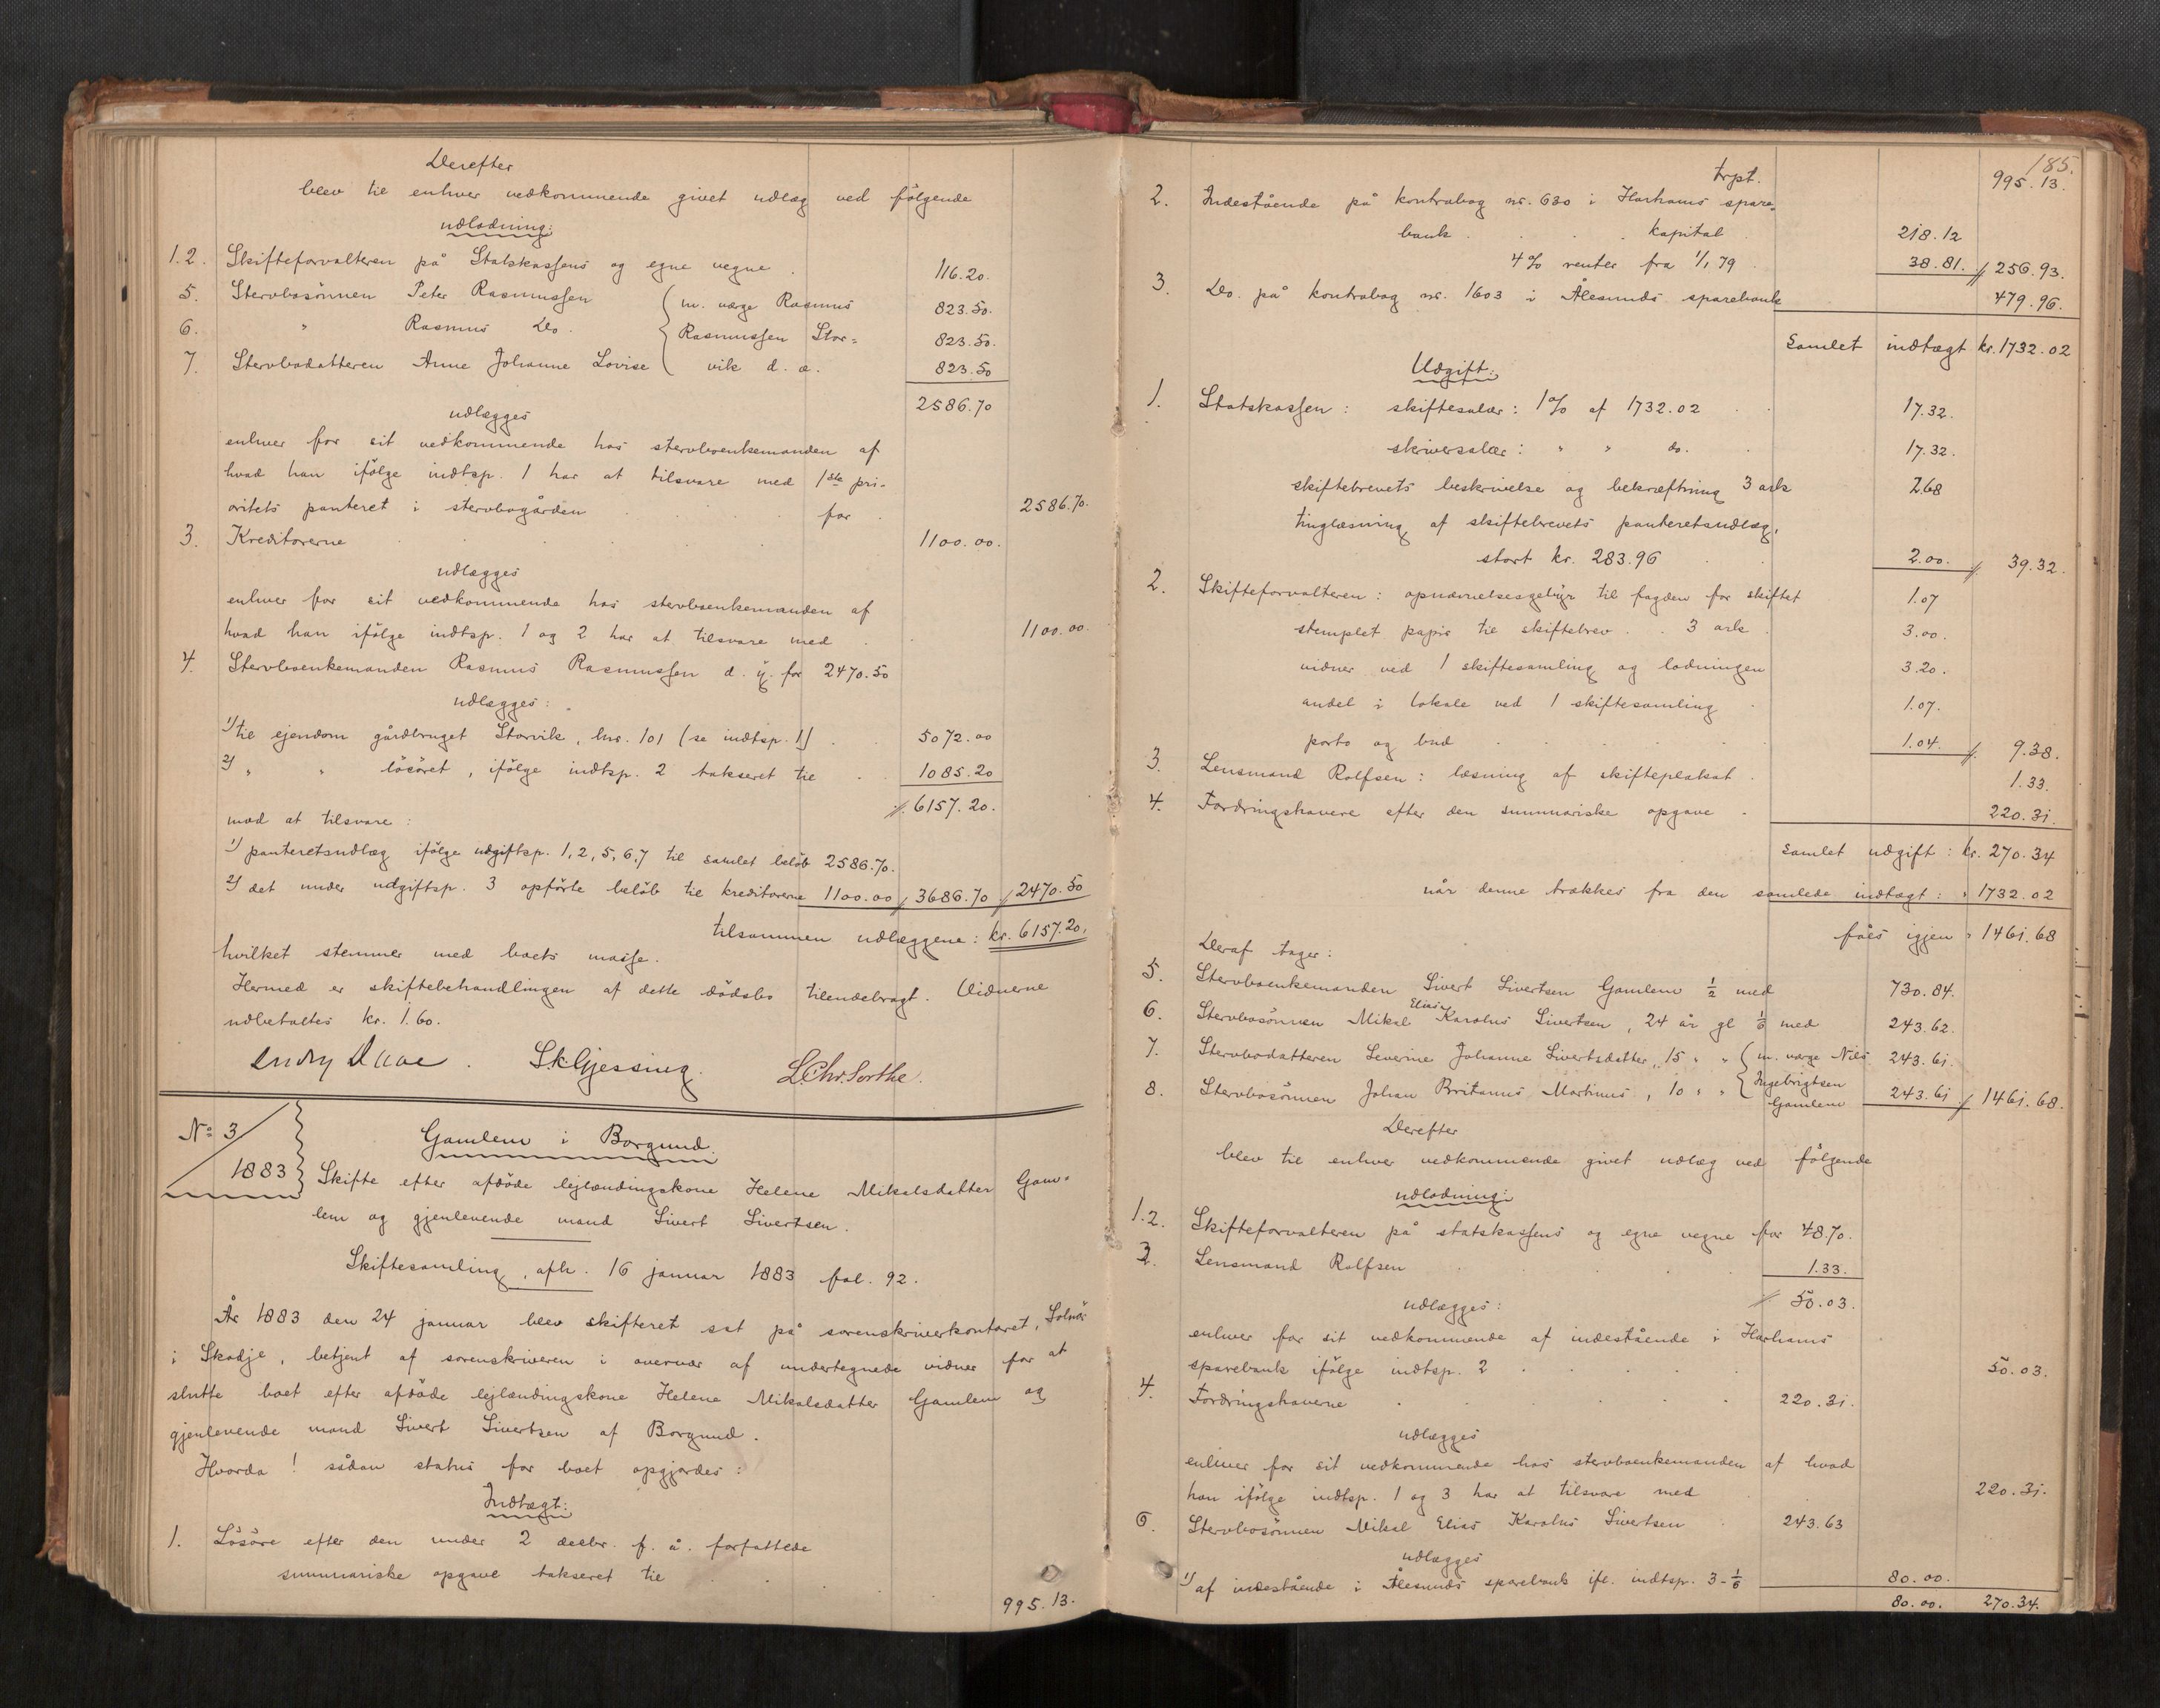 Derefter
blev til enhver vedkommende givet udlæg ved følgende
udlodning:
1.2. Skifteforvalteren på Statskassens og egne vegne . 116.20.
5. Stervbosönnen Peter Rasmussen ( m. værge Rasmus 823.50.
6. " Rasmus Do. { Rasmussen Stor= 823.50.
7. Stervbodatteren Anne Johanne Lovise ( vik d. æ. 823.50
2586.70
udlægges
enhver for sit vedkommende hos stervboenkemanden af
hvad han ifölge indtsp. 1 har at tilsvare med 1ste pri-
oritets panteret i stervbogården . . . . for . 2586.70.
3. Kreditorerne . . . . 1100.00.
udlægges
enhver for sit vedkommende hos stervboenkemanden af
hvad han ifölge indtsp. 1 og 2 har at tilsvare med . 1100.00.
4. Stervboenkemanden Rasmus Rasmussen d. y. for 2470.50
udlægges:
1) til ejendom gårdbruget Storvik, lnr. 101 (se indtsp. 1) . . 5072.00
2) " " lösöret, ifölge indtsp. 2 takseret til . 1085.20
6157.20.
mod at tilsvare:
1) panteretsudlæg ifölge udgiftsp. 1, 2, 5, 6, 7 til samlet belöb 2586.70.
2) det under udgiftsp. 3 opförte belöb til kreditorerne 1100.00 3686.70 2470.50
tilsammen udlæggene: kr. 6157.20.
hvilket stemmer med boets masse.
Hermed er skiftebehandlingen af dette dödsbo tilendebragt. Vidnerne
udbetaltes kr. 1.60.
Sk Gjessing. L. Chr. Sorthe.
No 3
1883
Gamlem i Borgund.
Skifte efter afdöde lejlændingskone Helene Mikalsdatter Gam=
lem og gjenlevende mand Sivert Sivertsen.
Skiftesamling, afh. 16 januar 1883 fol. 92.
År 1883 den 24 januar blev skifteret sat på sorenskriverkontoret, Solnör
i Skodje, betjent af sorenskriveren i overvær af undertegnede vidner for at
slutte boet efter afdöde lejlændingskone Helene Mikalsdatter Gamlem og
gjenlevende mand Sivert Sivertsen af Borgund.
Hvorda! sådan status for boet opgjordes:
Indtægt:
1. Lösöre efter den under 2 decbr. f. å. forfattede
summariske opgave takseret til . . . 995.13.
185.
Trpt. 995.13.
2. Indestående på kontrabog nr. 630 i Harhams spare=
bank . . . kapital . 218.12
4% renter fra 1/1 79 . 38.81. 256.93.
3. Do. på kontrabog nr. 1603 i Ålesunds sparebank 479.96.
Samlet indtægt kr. 1732.02
Udgift:
1. Statskassen: skiftesalær: 1% af 1732.02 . . 17.32.
skriversalær: " " do. . 17.32.
skiftebrevets beskrivelse og bekræftning 3 ark 2.68
tinglæsning af skiftebrevets panteretsudlæg,
stort kr. 283.96 . 2.00. 39.32.
2. Skifteforvalteren: opnævnelsesgebyr til fogden for skiftet 1.07
stemplet papir til skiftebrev . . 3 ark . 3.00.
vidner ved 1 skiftesamling og lodningen 3.20.
andel i lokale ved 1 skiftesamling . 1.07.
porto og bud . . . . 1.04. 9.38.
3. Lensmand Rolfsen: læsning af skifteplakat . 1.33.
4. Fordringshavere efter den summariske opgave . 220.31.
Samlet udgift: kr. 270.34
når denne trækkes fra den samlede indtægt: " 1732.02
fåes igjen " 1461.68
Deraf tager:
5. Stervboenkemanden Sivert Sivertsen Gamlem 1/2 med 730.84.
6. Stervbosönnen Mikal Elias Karolus Sivertsen, 24 år gl 1/6 med 243.62.
7. Stervbodatteren Severine Johanne Sivertsdatter, 15 " " { m. værge Nils 243.61.
8. Stervbosönnen Johan Britanus Martinus, 10 " " { Ingebrigtsen Gamlem 243.61. 1461.68.
Derefter
blev til enhver vedkommende givet udlæg ved fölgende
udlodning:
1.2. Skifteforvalteren på statskassens og egne vegne for 48.70.
3. Lensmand Rolfsen . . . 1.33.
50.03.
udlægges:
enhver for sit vedkommende af indestående i Harhams
sparebank ifölge indtsp. 2 . . . . 50.03.
4. Fordringshaverne . . . . 220.31.
udlægges
enhver for sit vedkommende hos stervboenkemanden af hvad
han ifölge indtsp. 1 og 3 har at tilsvare med . 220.31.
6. Stervbosönnen Mikal Elias Karolus Sivertsen . 243.63
udlægges
1) af indestående i Ålesunds sparebank ifl. indtsp. 3 - 1/6 80.00.
80.00. 270.34.